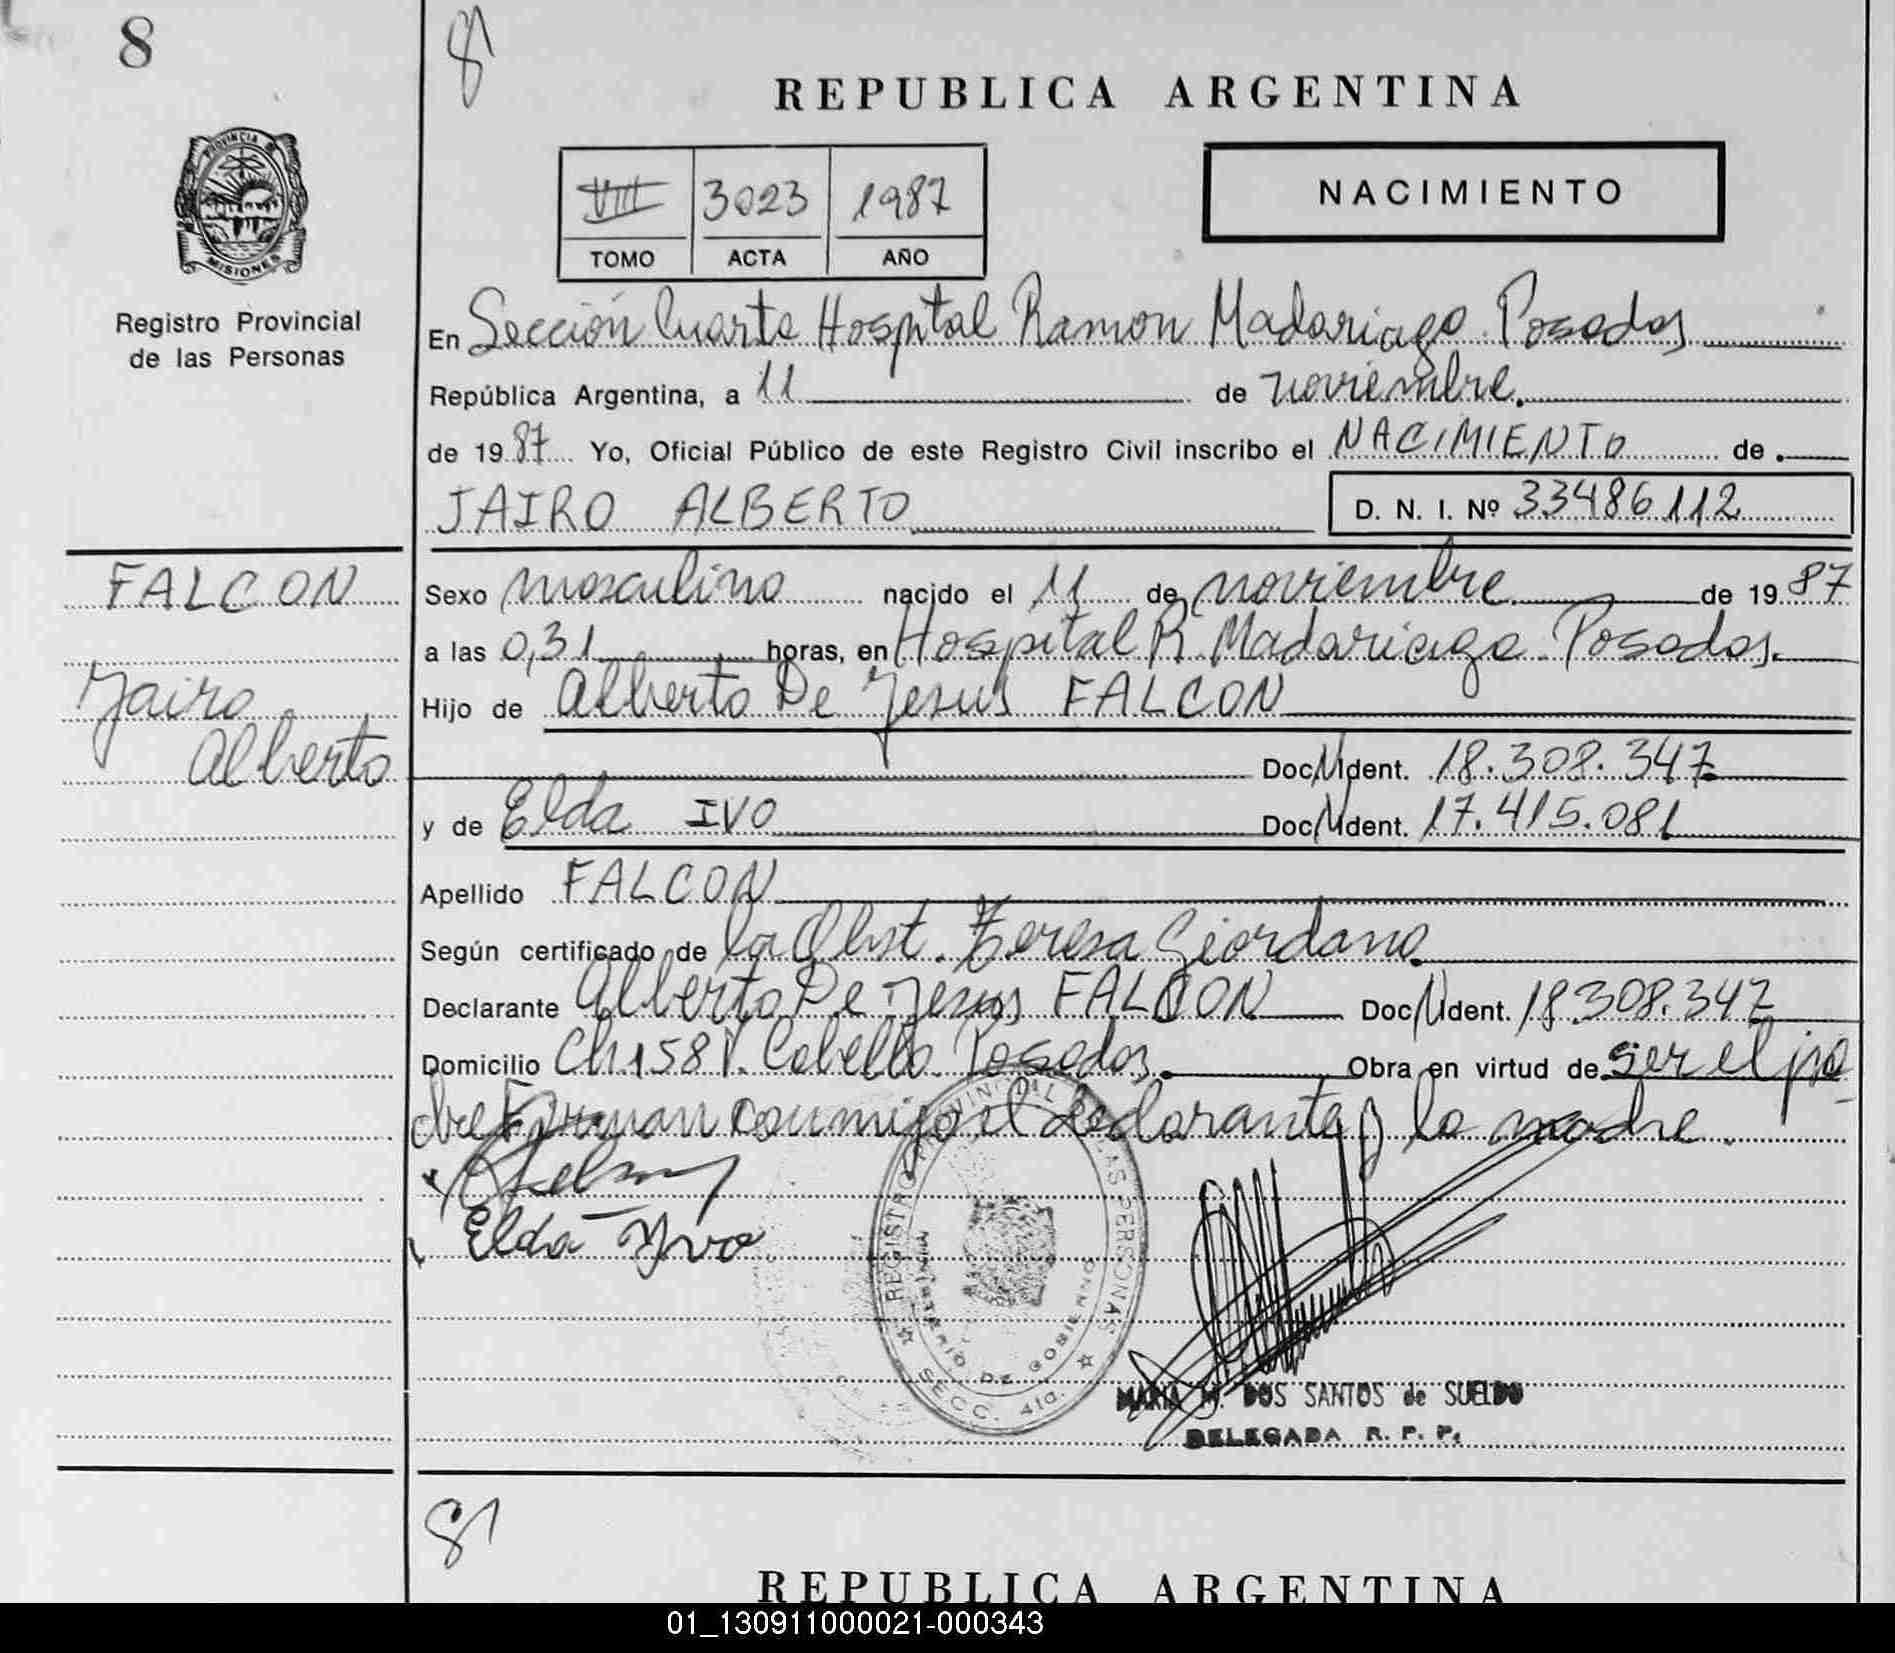 8
81
REPUBLICA ARGENTINA
PROVINCIA DE
MISIONES
Registro Provincial
de las Personas
VIII 3023 1987
TOMO ACTA AÑO
NACIMIENTO
En Sección Cuarta Hospital Ramon Madariaga Posadas
República Argentina, a 11 de noviembre.
de 1987 Yo, Oficial Público de este Registro Civil inscribo el NACIMIENTO de
JAIRO ALBERTO D. N. I. Nº 33486112
FALCON
Jairo
Alberto
Sexo masculino nacido el 11 de noviembre de 1987
a las 0,31 horas, en Hospital R. Madariaga Posadas.
Hijo de Alberto De Jesus FALCON
Doc. N. Ident. 18.308.347
y de Elda IVO Doc. N. Ident. 17.415.081
Apellido FALCON
Según certificado de la Obst. Teresa Giordano
Declarante Alberto De Jesus FALCON Doc. N. Ident. 18.308.347
Domicilio Ch 158 V. Cabello Posadas. Obra en virtud de ser el pa-
dre Firman conmigo el declarante y la madre.
Elda Yvo
REGISTRO PROVINCIAL DE LAS PERSONAS
MINISTERIO DE GOBIERNO
SECC. 4ta.
MARIA M. DOS SANTOS de SUELDO
DELEGADA R. P. P.
81
REPUBLICA ARGENTINA
01_130911000021-000343